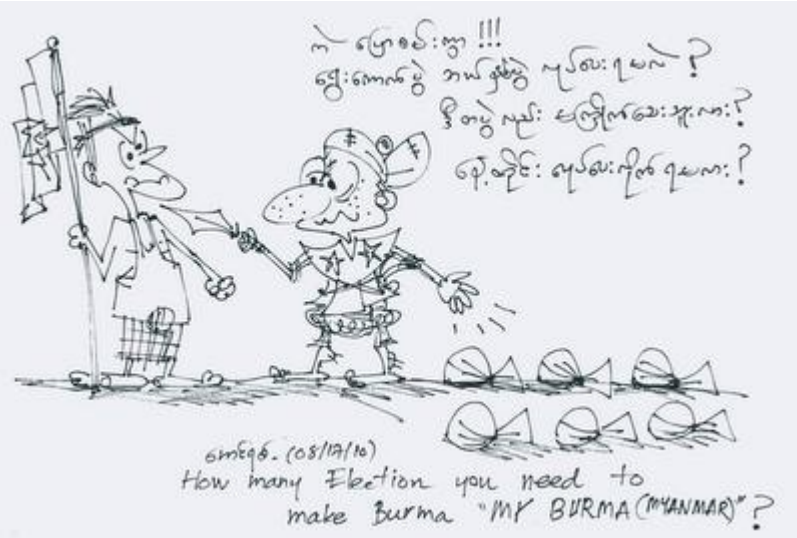 ကဲ ပြောစမ်းကွာ !!!
ရွေးကောက်ပွဲ ဘယ်နှစ်ပွဲ လုပ်ပေးရမလဲ ?
ဒီတပွဲလည်း မကြိုက်သေးဘူးလား ?
နေ့တိုင်း လုပ်ပေးလိုက်ရမလား ?
(08/17/10)
How many Election you need to
make Burma "MY BURMA (MYANMAR)" ?